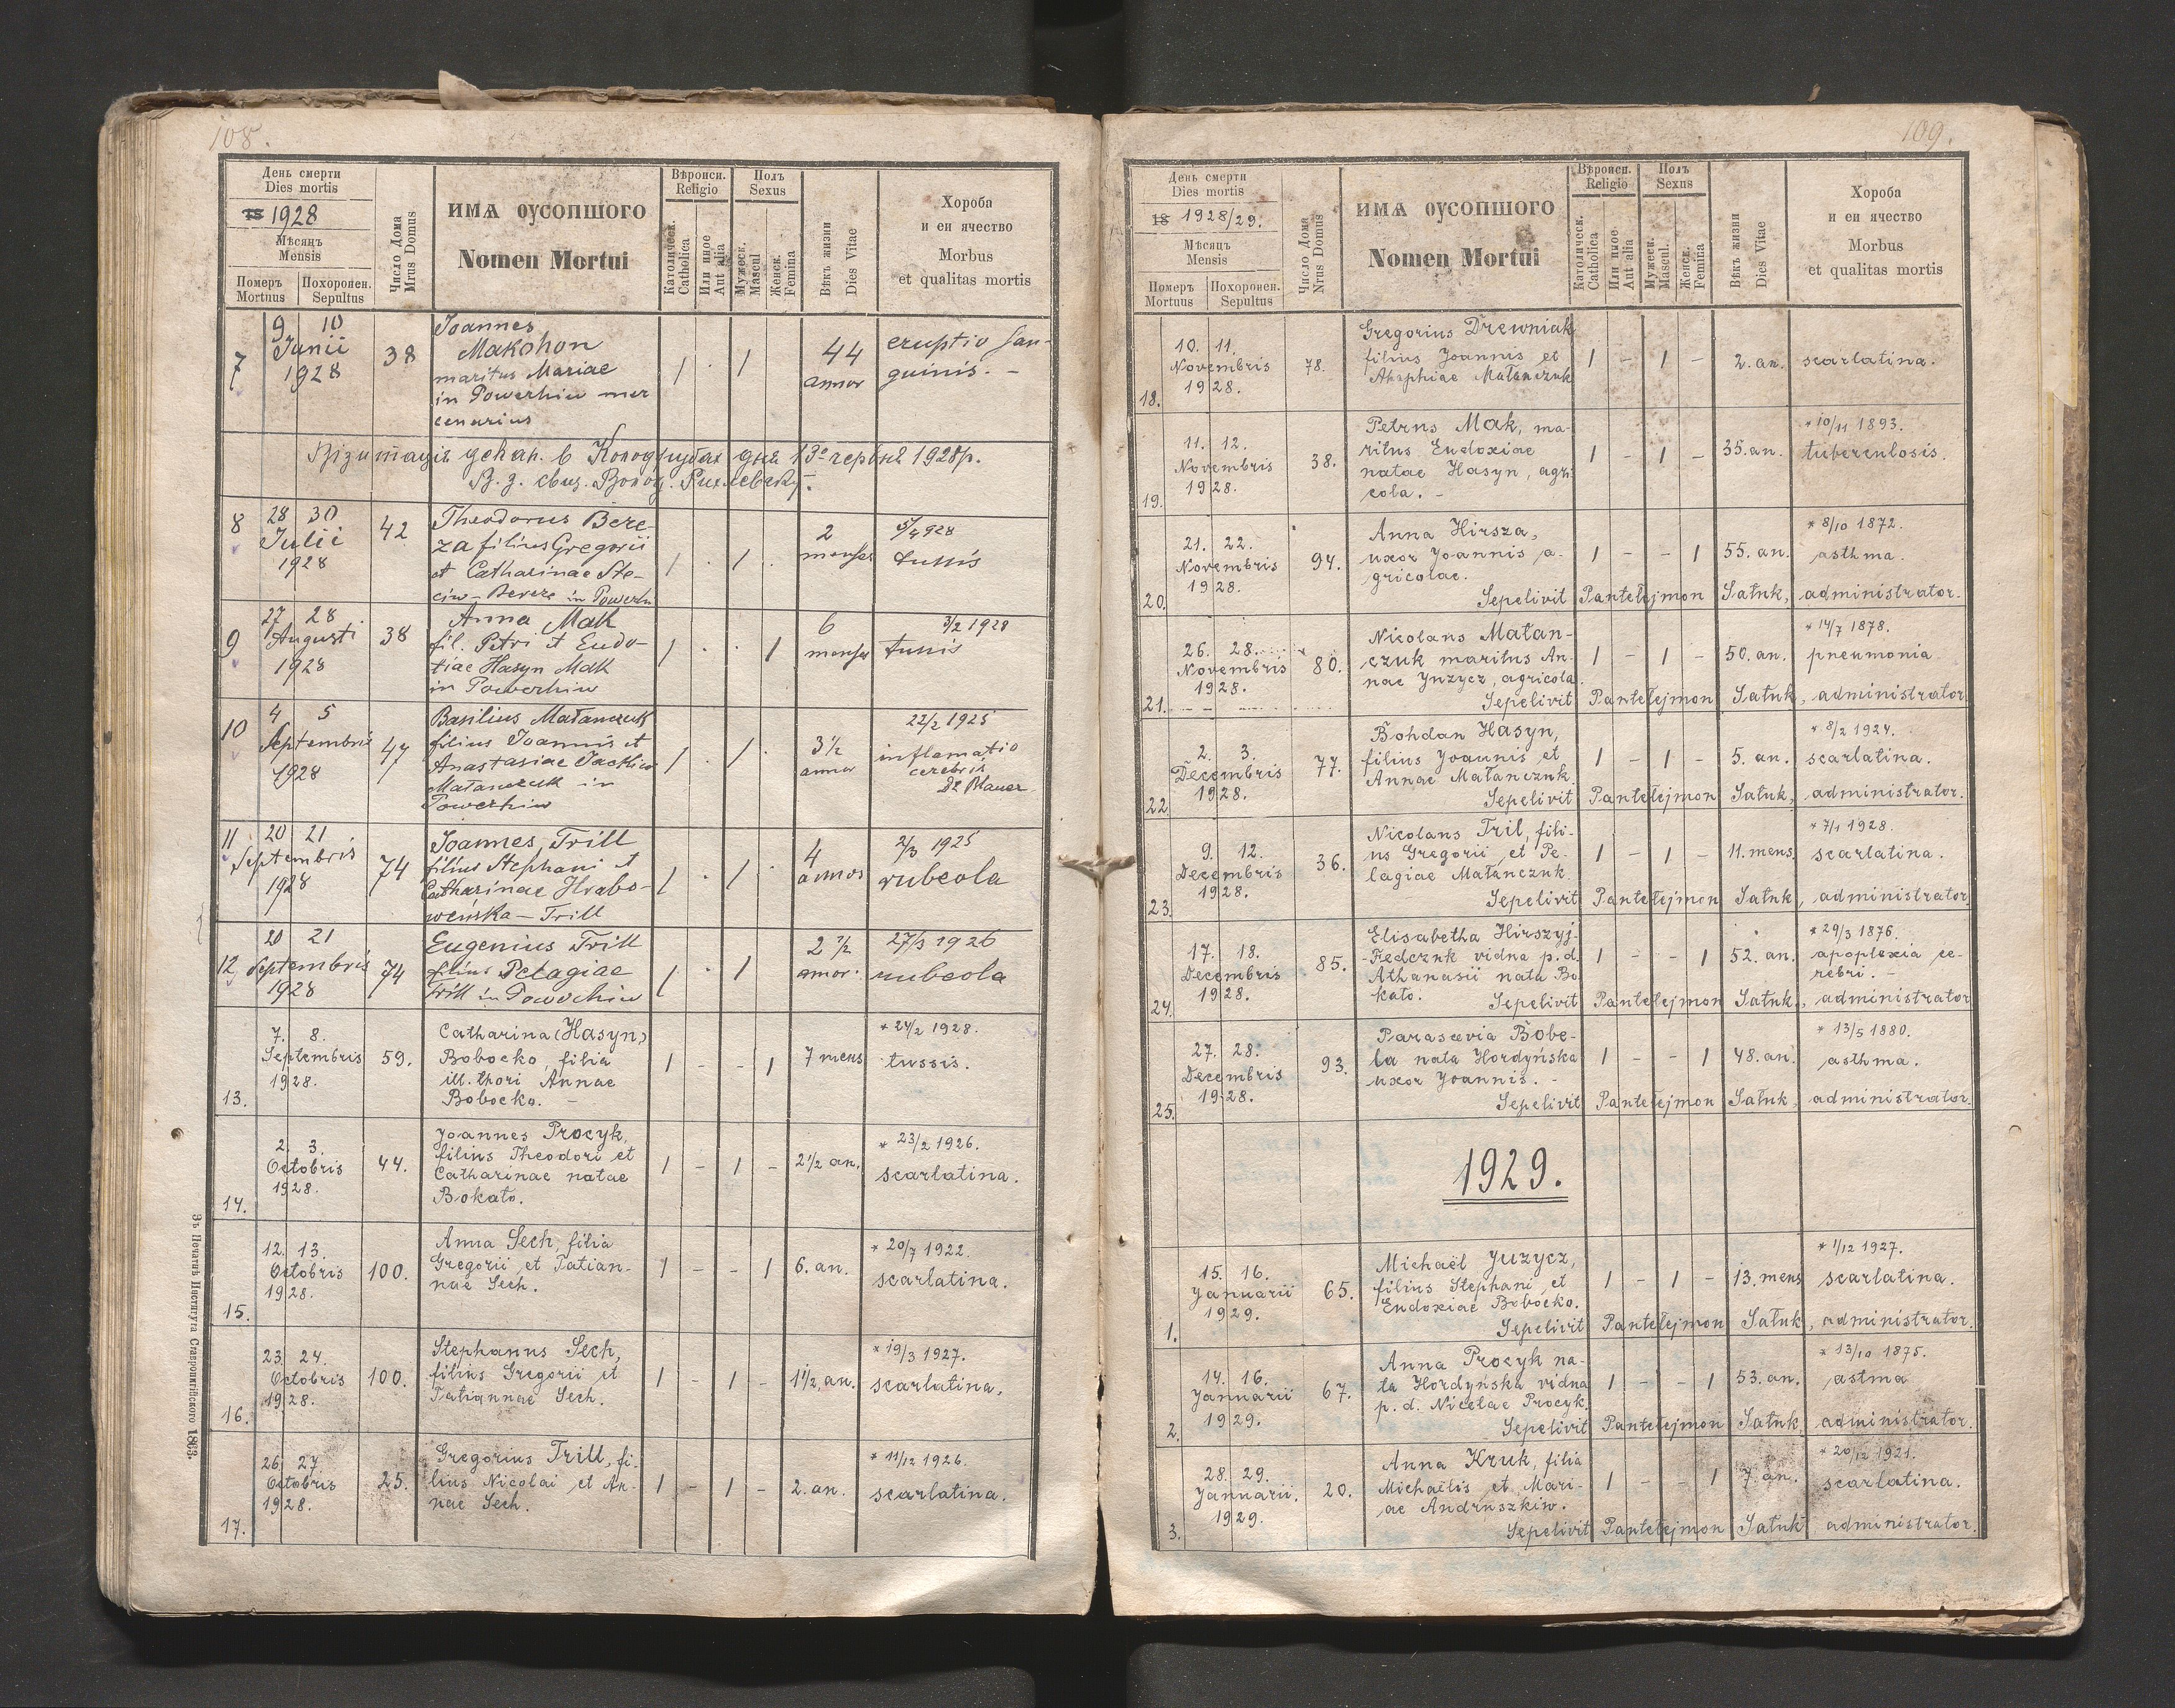 108.
День смерти
Dies mortis
18 1928
Мѣсяцъ
Mensis
Померъ
Mortuus
Похоронен.
Sepultus
Число Дома
Nrus Domus
ИМѦ ОУСОПШОГО
Nomen Mortui
Вѣроисп.
Religio
Католическ.
Catholica
Или иное
Aut alia
Полъ
Sexus
Мужеск.
Mascul
Женск.
Femina
Вѣкъ жизни
Dies Vitae
Хороба
и еи ячество
Morbus
et qualitas mortis
7
9 10
Junii
1928
38
Joannes
Makohon
maritus Mariae
in Powerhiw mer
cenarius
1 . 1
44
annor
eruptio san-
guinis. -
Візитація декан. в Колодрубах дня 13го червня 1928р.
8
28 30
Julii
1928
42
Theodorus Bere-
za filius Gregorii
et Catharinae Ste-
ciw - Bereza in Powerh
1 . 1 .
2
menses
5/4 928
tussis
9
27 28
Augusti
1928
38
Anna Mak
fil. Petri et Eudo-
xiae Hasyn Mak
in Powerhiw
1 . . 1
6
menses
3/2 1928
tussis
10
4 5
Septembris
1928
47
Basilius Matanczuk
filius Joannis et
Anastasiae Jackiw
Matanczuk in
Powerhiw
1 . 1 .
3 1/2
annor
22/2 1925
inflamatio
cerebris
Dr Blauer
11
20 21
Septembris
1928
74
Joannes Trill
filius Stephani et
Catharinae Hrabo-
weńska - Trill
1 . 1 .
4
annos
2/3 1925
rubeola
12
20 21
Septembris
1928
74
Eugenius Trill
filius Pelagiae
Trill in Powerhiw
1 . 1
2 1/2
annor.
27/3 1926
rubeola
13.
7. 8.
Septembris
1928.
59.
Catharina (Hasyn)
Bobocko, filia
ill. thori Annae
Bobocko. -
1 - - 1
7 mens
* 24/2 1928.
tussis.
14.
2. 3.
Octobris
1928.
44.
Joannes Procyk,
filius Theodori et
Catharinae natae
Bokato.
1 - 1 -
2 1/2 an.
* 23/2 1926.
scarlatina.
15.
12. 13.
Octobris
1928.
100.
Anna Sech, filia
Gregorii et Tatian-
nae Sech.
1 - - 1
6. an.
* 20/7 1922.
scarlatina.
16.
23. 24.
Octobris
1928.
100.
Stephanus Sech,
filius Gregorii et
Tatiannae Sech.
1 - 1 -
1 1/2 an.
* 19/3 1927.
scarlatina.
17.
26. 27
Octobris
1928.
25.
Gregorius Trill, fi-
lius Nicolai et An-
nae Sech.
1 - 1 -
2. an.
* 11/12 1926.
scarlatina.
Зъ Печатнѣ Института Ставропигійского 1863.
109.
День смерти
Dies mortis
18 1928/29.
Мѣсяцъ
Mensis
Померъ
Mortuus
Похоронен.
Sepultus
Число Дома
Nrus Domus
ИМѦ ОУСОПШОГО
Nomen Mortui
Вѣроисп.
Religio
Католическ.
Catholica
Или иное
Aut alia
Полъ
Sexus
Мужеск.
Mascul.
Женск.
Femina
Вѣкъ жизни
Dies Vitae
Хороба
и еи ячество
Morbus
et qualitas mortis
18.
10. 11.
Novembris
1928.
78.
Gregorius Drewniak
filius Joannis et
Ahaphiae Matanczuk
1 - 1 -
2. an.
scarlatina.
19.
11. 12.
Novembris
1928.
38.
Petrus Mak, ma-
ritus Eudoxiae
natae Hasyn, agri-
cola. -
1 - 1 -
35. an.
* 10/11 1893.
tuberculosis.
20.
21. 22.
Novembris
1928.
94.
Anna Hirsza,
uxor Joannis a-
gricolae.
1 - - 1
55. an.
* 8/10 1872.
asthma.
Sepelivit Pantelejmon Satuk, administrator.
21.
26. 28.
Novembris
1928.
80.
Nicolaus Matan-
czuk maritus An-
nae Yuzycz, agricola.
1 - 1 -
50. an.
* 14/7 1878.
pneumonia
Sepelivit Pantelejmon Satuk, administrator
22
2. 3.
Decembris
1928.
77.
Bohdan Hasyn,
filius Joannis et
Annae Matanczuk.
1 - 1 -
5. an.
* 8/2 1924.
scarlatina.
Sepelivit Pantelejmon Satuk, administrator.
23.
9. 12.
Decembris
1928.
36.
Nicolaus Tril, fili-
us Gregorii et Pe-
lagiae Matanczuk.
1 - 1 -
11. mens.
* 7/1 1928.
scarlatina.
Sepelivit Pantelejmon Satuk, administrator
24.
17. 18.
Decembris
1928.
85.
Elisabetha Hirszyj-
-Fedczuk vidua p. d.
Athanasii nata Bo-
kato.
1 - - 1
52. an.
* 29/3 1876.
apoplexia ce-
rebri. -
Sepelivit Pantelejmon Satuk, administrator
25.
27. 28.
Decembris
1928.
93.
Parascevia Bobe-
la nata Hordyńska
uxor Joannis. -
1 - - 1
48. an.
* 13/5 1880.
asthma.
Sepelivit Pantelejmon Satuk, administrator.
1929.
1.
15. 16.
Januarii
1929.
65.
Michaël Yuzycz,
filius Stephani et
Eudoxiae Bobocko.
1 - 1 -
13. mens
* 1/12 1927.
scarlatina.
Sepelivit Pantelejmon Satuk, administrator.
2.
14. 16.
Januarii
1929.
67.
Anna Procyk na-
ta Hordyńska vidua
p. d. Nicolae Procyk.
1 - - 1
53. an.
* 13/10 1875.
astma
Sepelivit Pantelejmon Satuk administrator.
3.
28. 29.
Januarii.
1929.
20.
Anna Kruk, filia
Michaëlis et Mari-
ae Andruszkiw.
1 - - 1
7 an.
* 20/12 1921.
scarlatina.
Sepelivit Pantelejmon Satuk administrator.